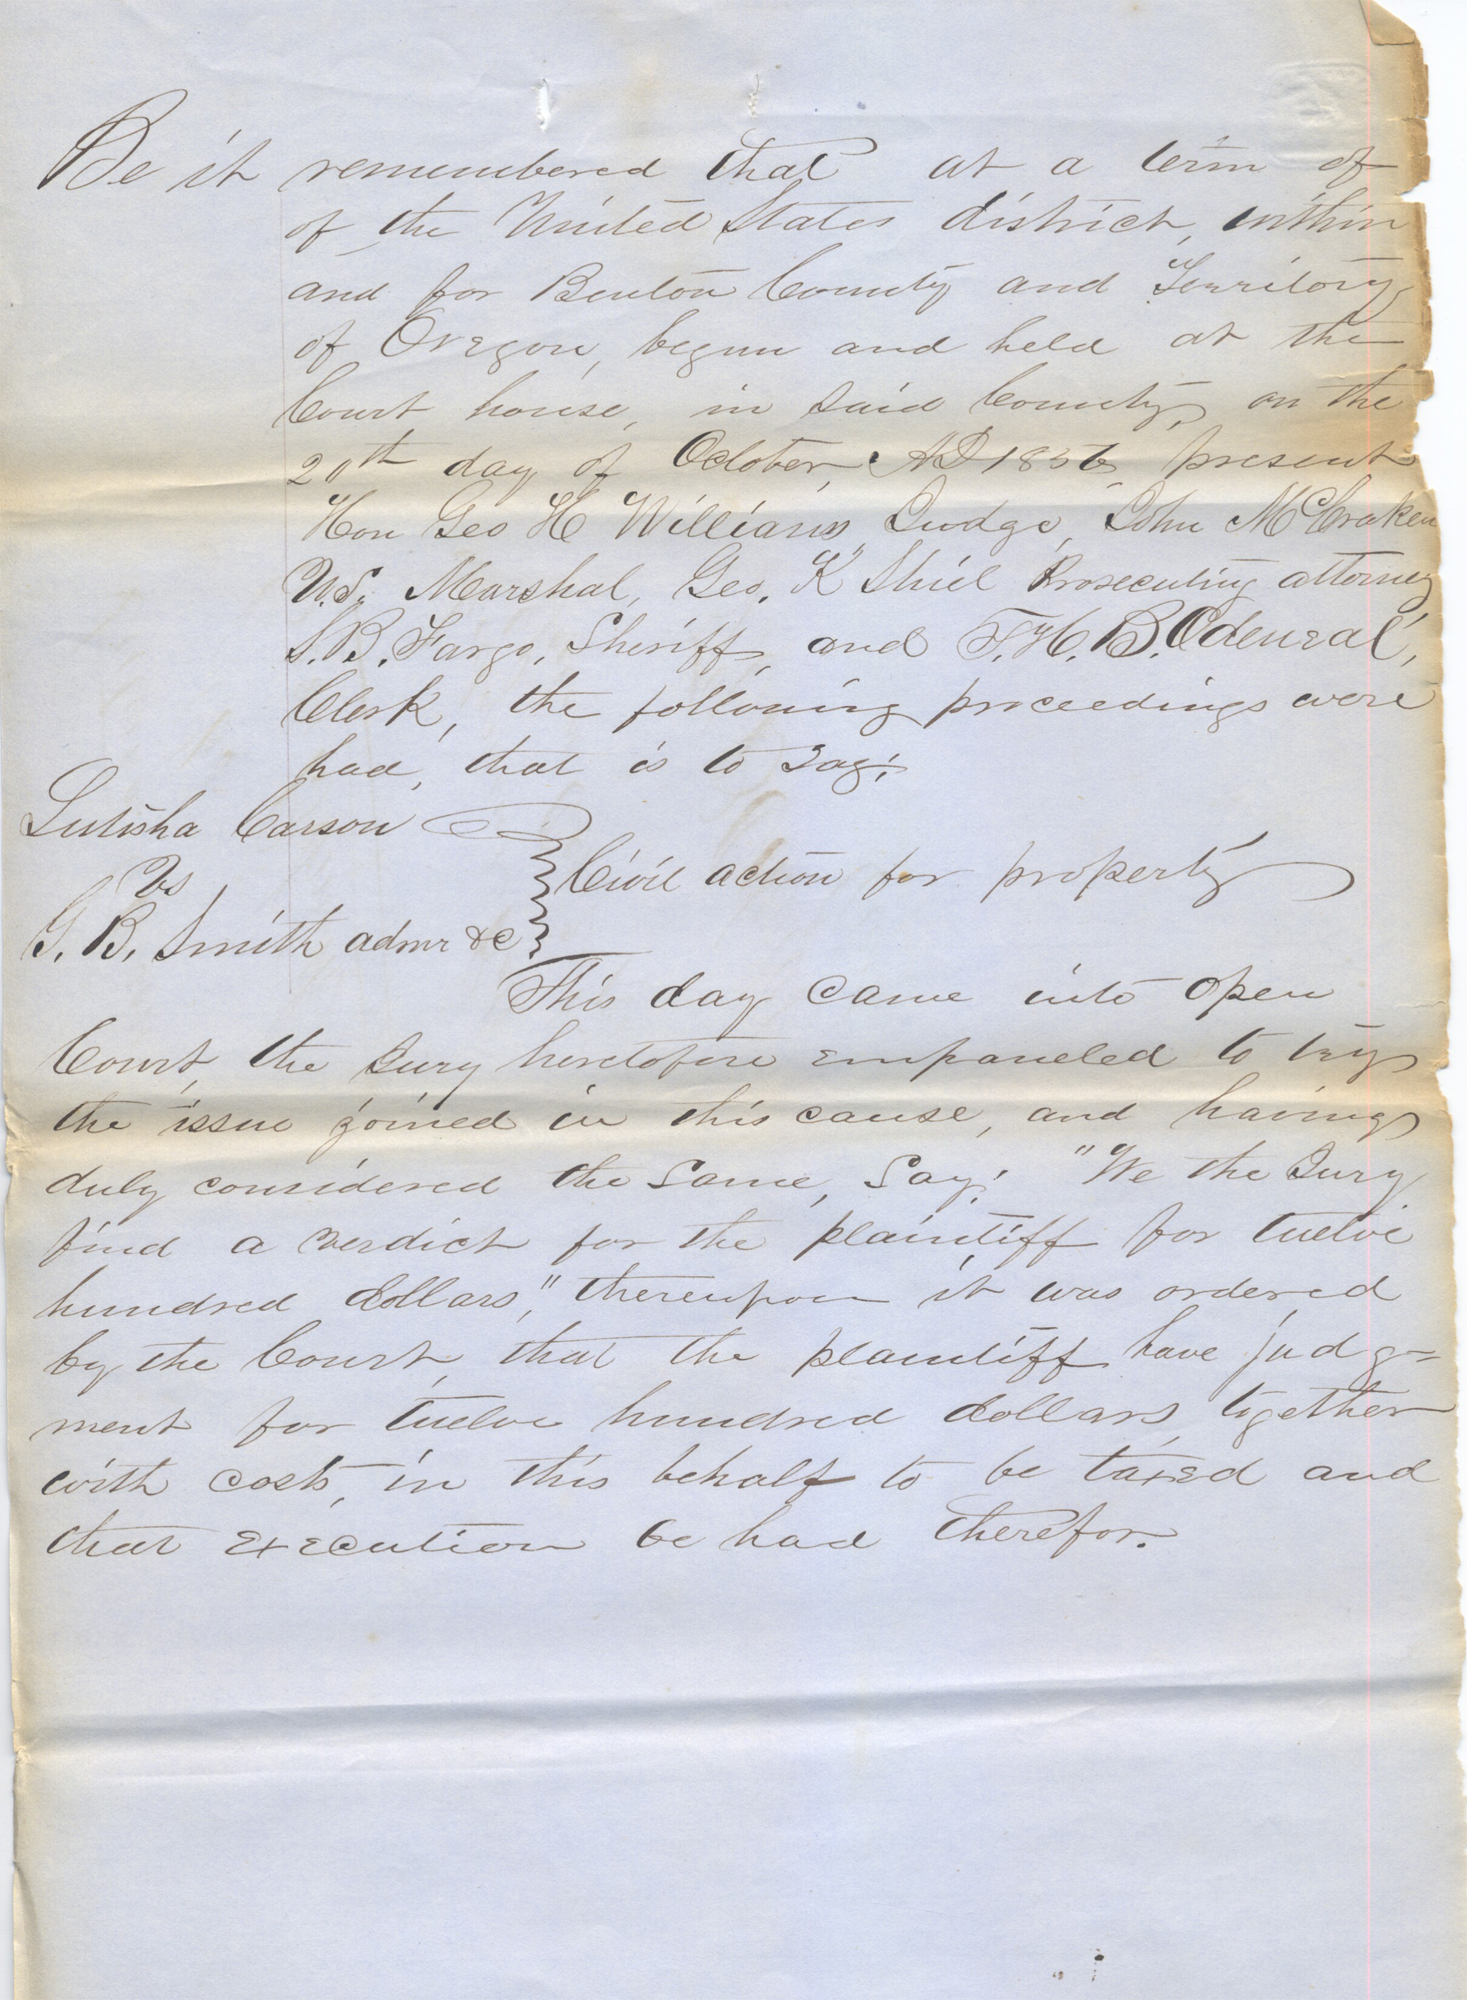 Be it remembered that at a term of
of the United States district, within
and for Benton County and Territory
of Oregon, begun and held at the
Court house, in said County, on the
20th day of October, AD 1856 present
Hon Geo H Williams, Judge, John McCraken
U.S. Marshal, Geo. K Shiel Prosecuting attorney
S.B. Fargo, Sheriff, and T.H.B. Odeneal,
Clerk, the following proceedings were
had, that is to say;
Lutisha Carson
Vs
Civil action for property
G. B. Smith admr &c
This day came into open
Court, the Jury heretofore empaneled to try
the issue joined in this cause, and having
duly considered the same, say: "We the Jury
find a verdict for the plaintiff for twelve
hundred dollars," thereupon it was ordered
by the Court, that the plaintiff have judg=
ment for twelve hundred dollars, together
with costs, in this behalf to be taxed and
that execution be had therefor.